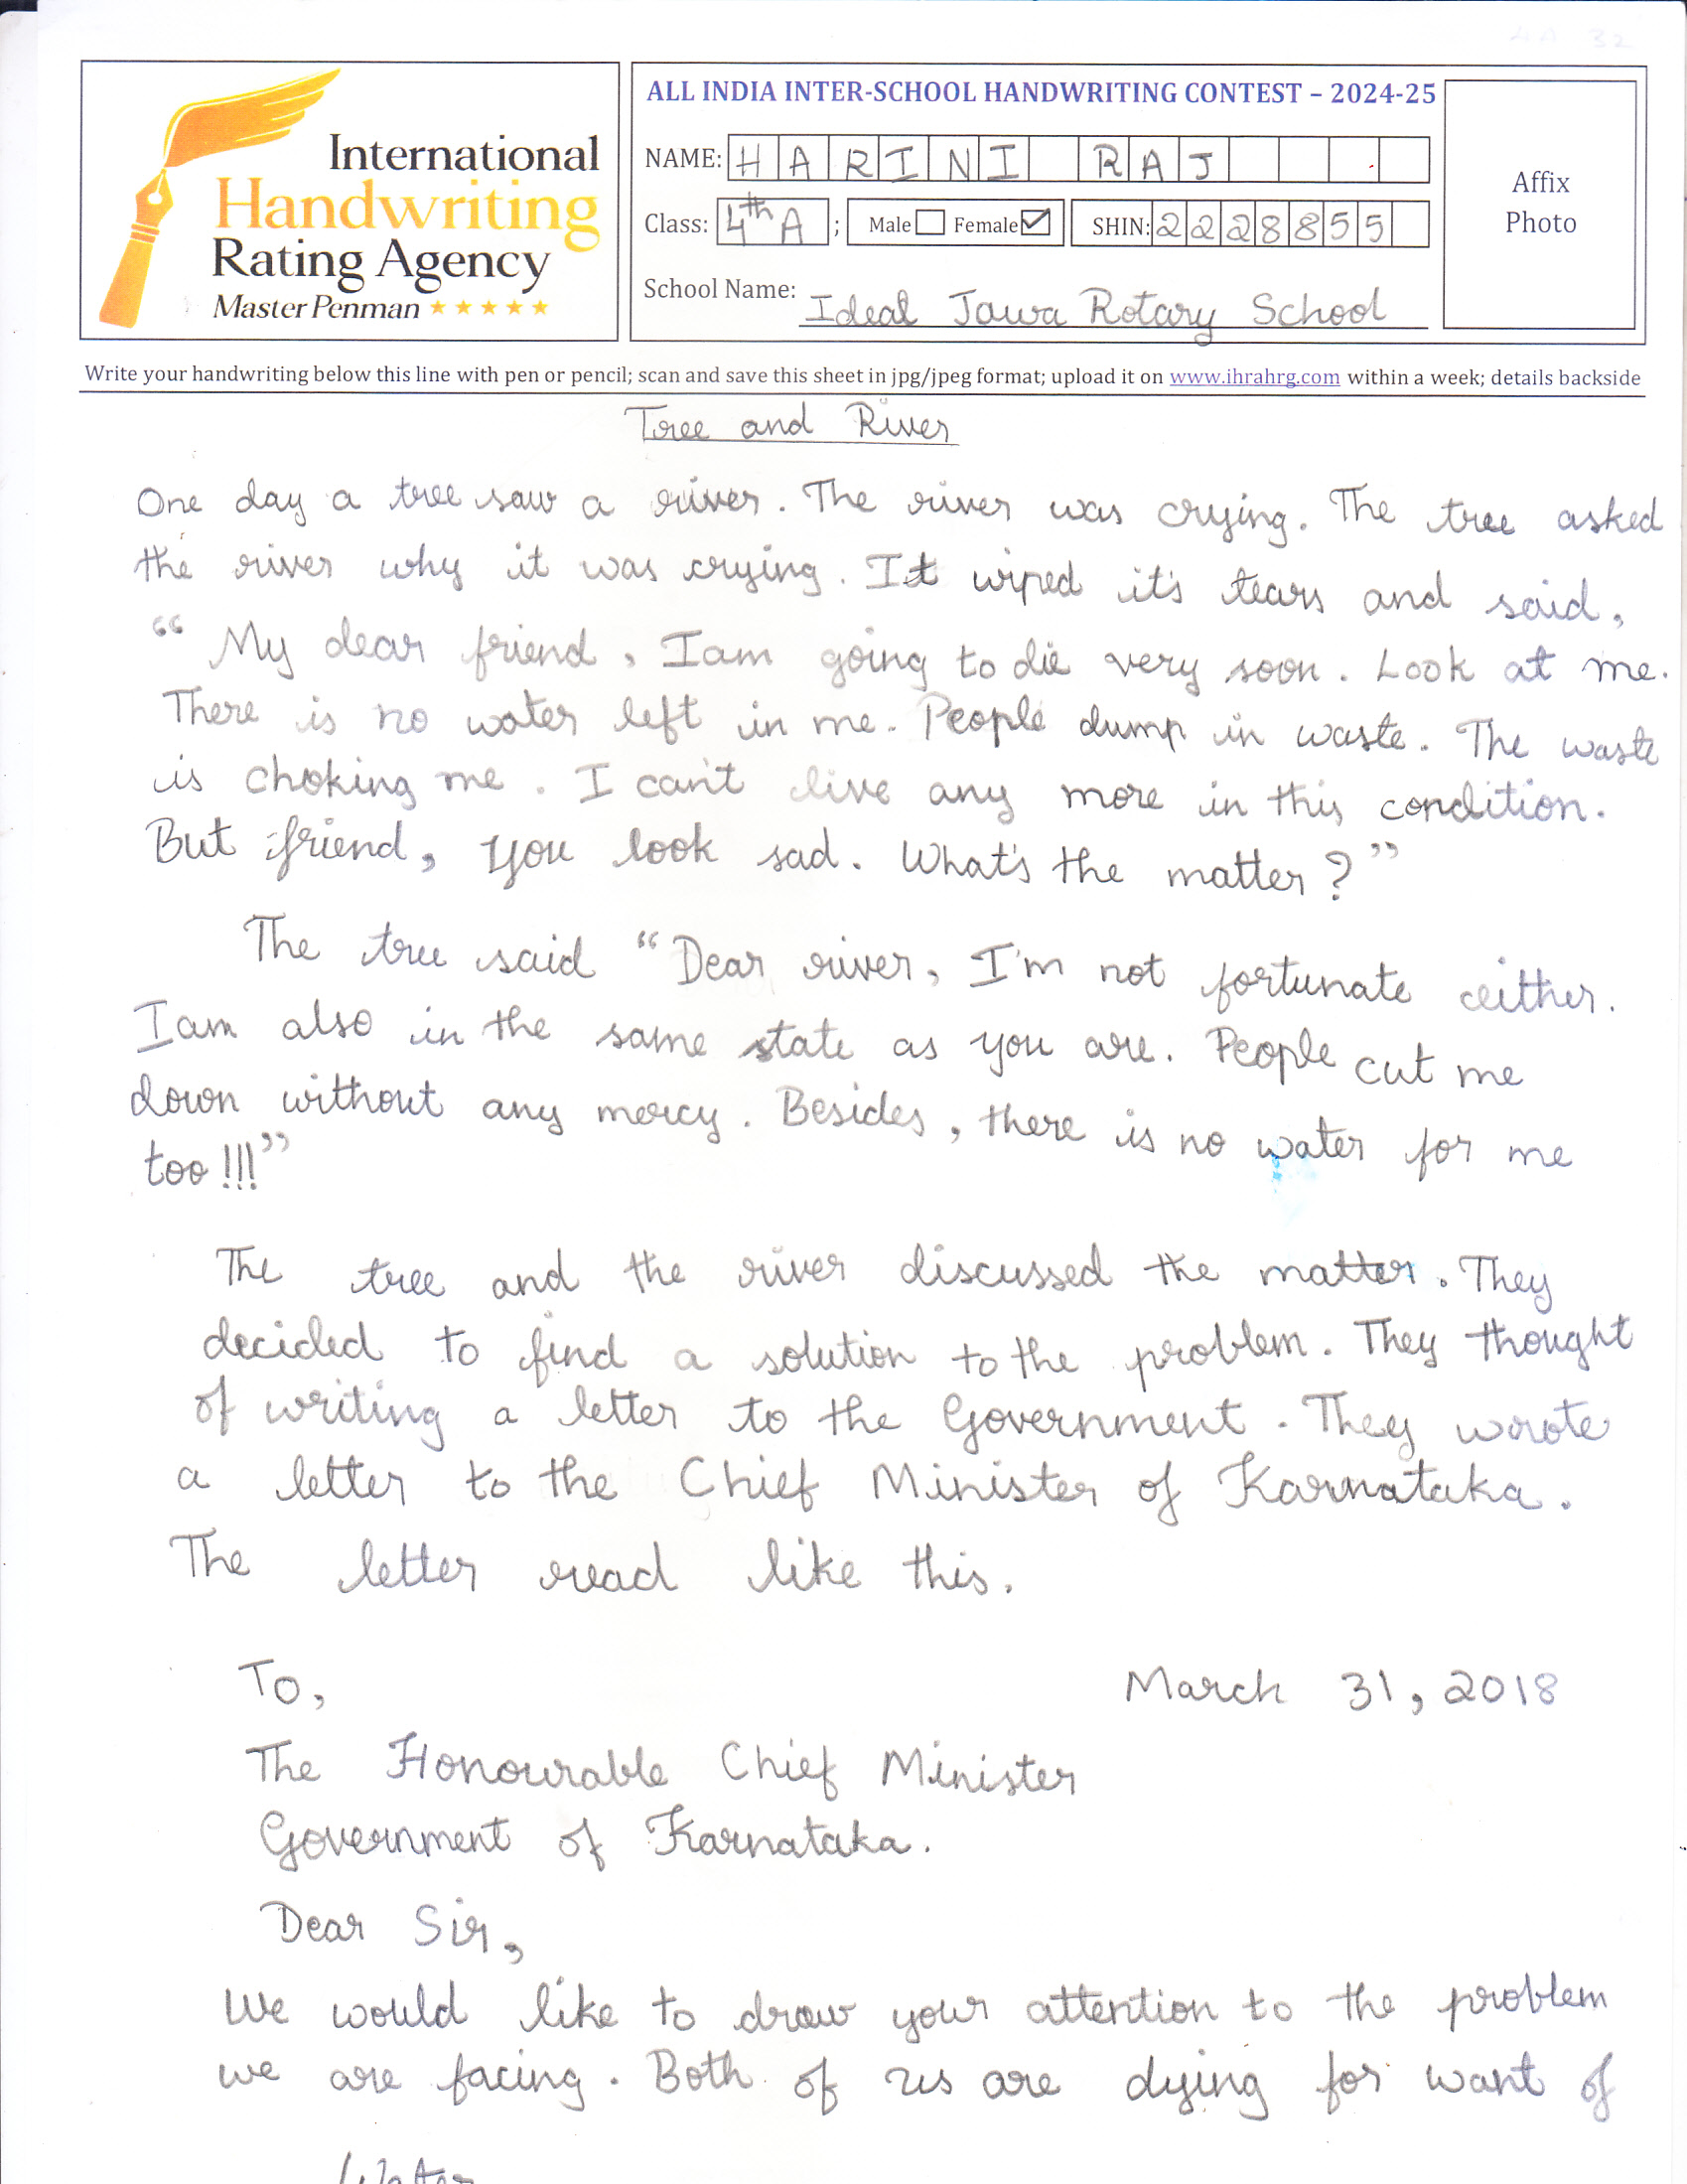 4A 32
International
Handwriting
Rating Agency
Master Penman
ALL INDIA INTER-SCHOOL HANDWRITING CONTEST – 2024-25
NAME: HARINI RAJ
Class: 4th A ; Male Female SHIN: 2228855
School Name: Ideal Jawa Rotary School
Affix
Photo
Write your handwriting below this line with pen or pencil; scan and save this sheet in jpg/jpeg format; upload it on www.ihrahrg.com within a week; details backside
Tree and River
One day a tree saw a river. The river was crying. The tree asked
the river why it was crying. It wiped it's tears and said,
“My dear friend, I am going to die very soon. Look at me.
There is no water left in me. People dump in waste. The waste
is choking me. I can't live any more in this condition.
But friend, you look sad. What's the matter?”
The tree said “Dear river, I'm not fortunate either.
I am also in the same state as you are. People cut me
down without any mercy. Besides, there is no water for me
too!!!”
The tree and the river discussed the matter. They
decided to find a solution to the problem. They thought
of writing a letter to the Government. They wrote
a letter to the Chief Minister of Karnataka.
The letter read like this.
To, March 31, 2018
The Honourable Chief Minister
Government of Karnataka.
Dear Sir,
We would like to draw your attention to the problem
we are facing. Both of us are dying for want of
Water